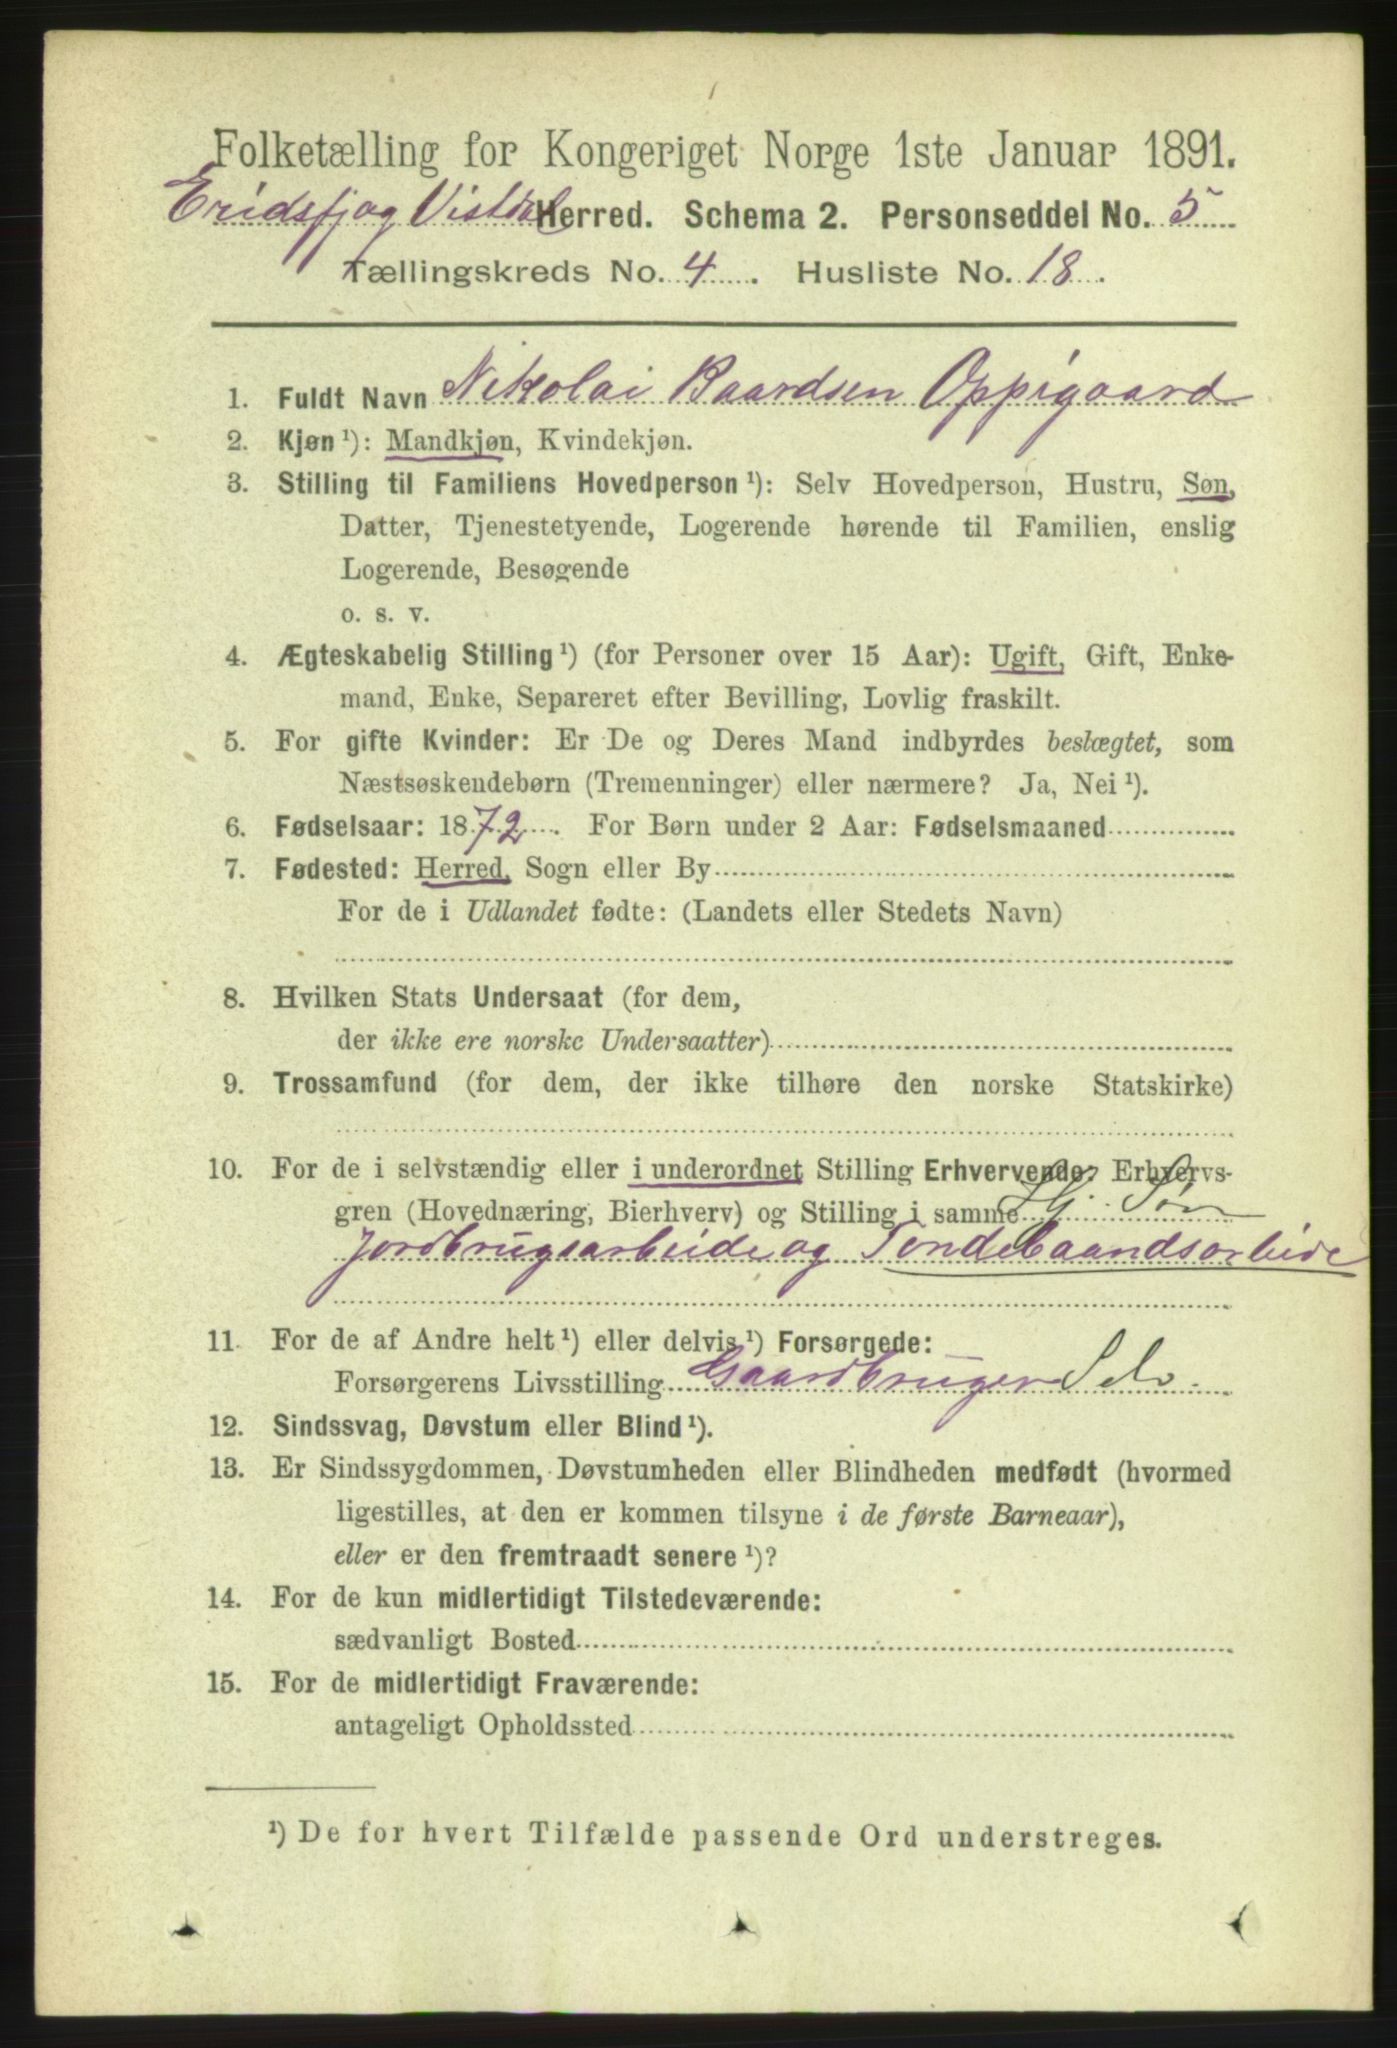 Folketælling for Kongeriget Norge 1ste Januar 1891.
Eridsfj og Vistdal Herred. Schema 2. Personseddel No. 5
Tællingskreds No. 4. Husliste No. 18.
1. Fuldt Navn Nikolai Baardsen Oppigaard
2. Kjøn ¹): Mandkjøn, Kvindekjøn.
3. Stilling til Familiens Hovedperson ¹): Selv Hovedperson, Hustru, Søn,
Datter, Tjenestetyende, Logerende hørende til Familien, enslig
Logerende, Besøgende
o. s. v.
4. Ægteskabelig Stilling ¹) (for Personer over 15 Aar): Ugift, Gift, Enke-
mand, Enke, Separeret efter Bevilling, Lovlig fraskilt.
5. For gifte Kvinder: Er De og Deres Mand indbyrdes beslægtet, som
Næstsøskendebørn (Tremenninger) eller nærmere? Ja, Nei ¹).
6. Fødselsaar: 1872. For Børn under 2 Aar: Fødselsmaaned
7. Fødested: Herred, Sogn eller By
For de i Udlandet fødte: (Landets eller Stedets Navn)
8. Hvilken Stats Undersaat (for dem,
der ikke ere norske Undersaatter)
9. Trossamfund (for dem, der ikke tilhøre den norske Statskirke)
10. For de i selvstændig eller i underordnet Stilling Erhvervende: Erhvervs-
gren (Hovednæring, Bierhverv) og Stilling i samme Hj. Søn
Jordbrugsarbeide og Tøndebaandsarbeide
11. For de af Andre helt ¹) eller delvis ¹) Forsørgede:
Forsørgerens Livsstilling Gaardbruger Selv.
12. Sindssvag, Døvstum eller Blind ¹).
13. Er Sindssygdommen, Døvstumheden eller Blindheden medfødt (hvormed
ligestilles, at den er kommen tilsyne i de første Barneaar),
eller er den fremtraadt senere ¹)?
14. For de kun midlertidigt Tilstedeværende:
sædvanligt Bosted
15. For de midlertidigt Fraværende:
antageligt Opholdssted
¹) De for hvert Tilfælde passende Ord understreges.